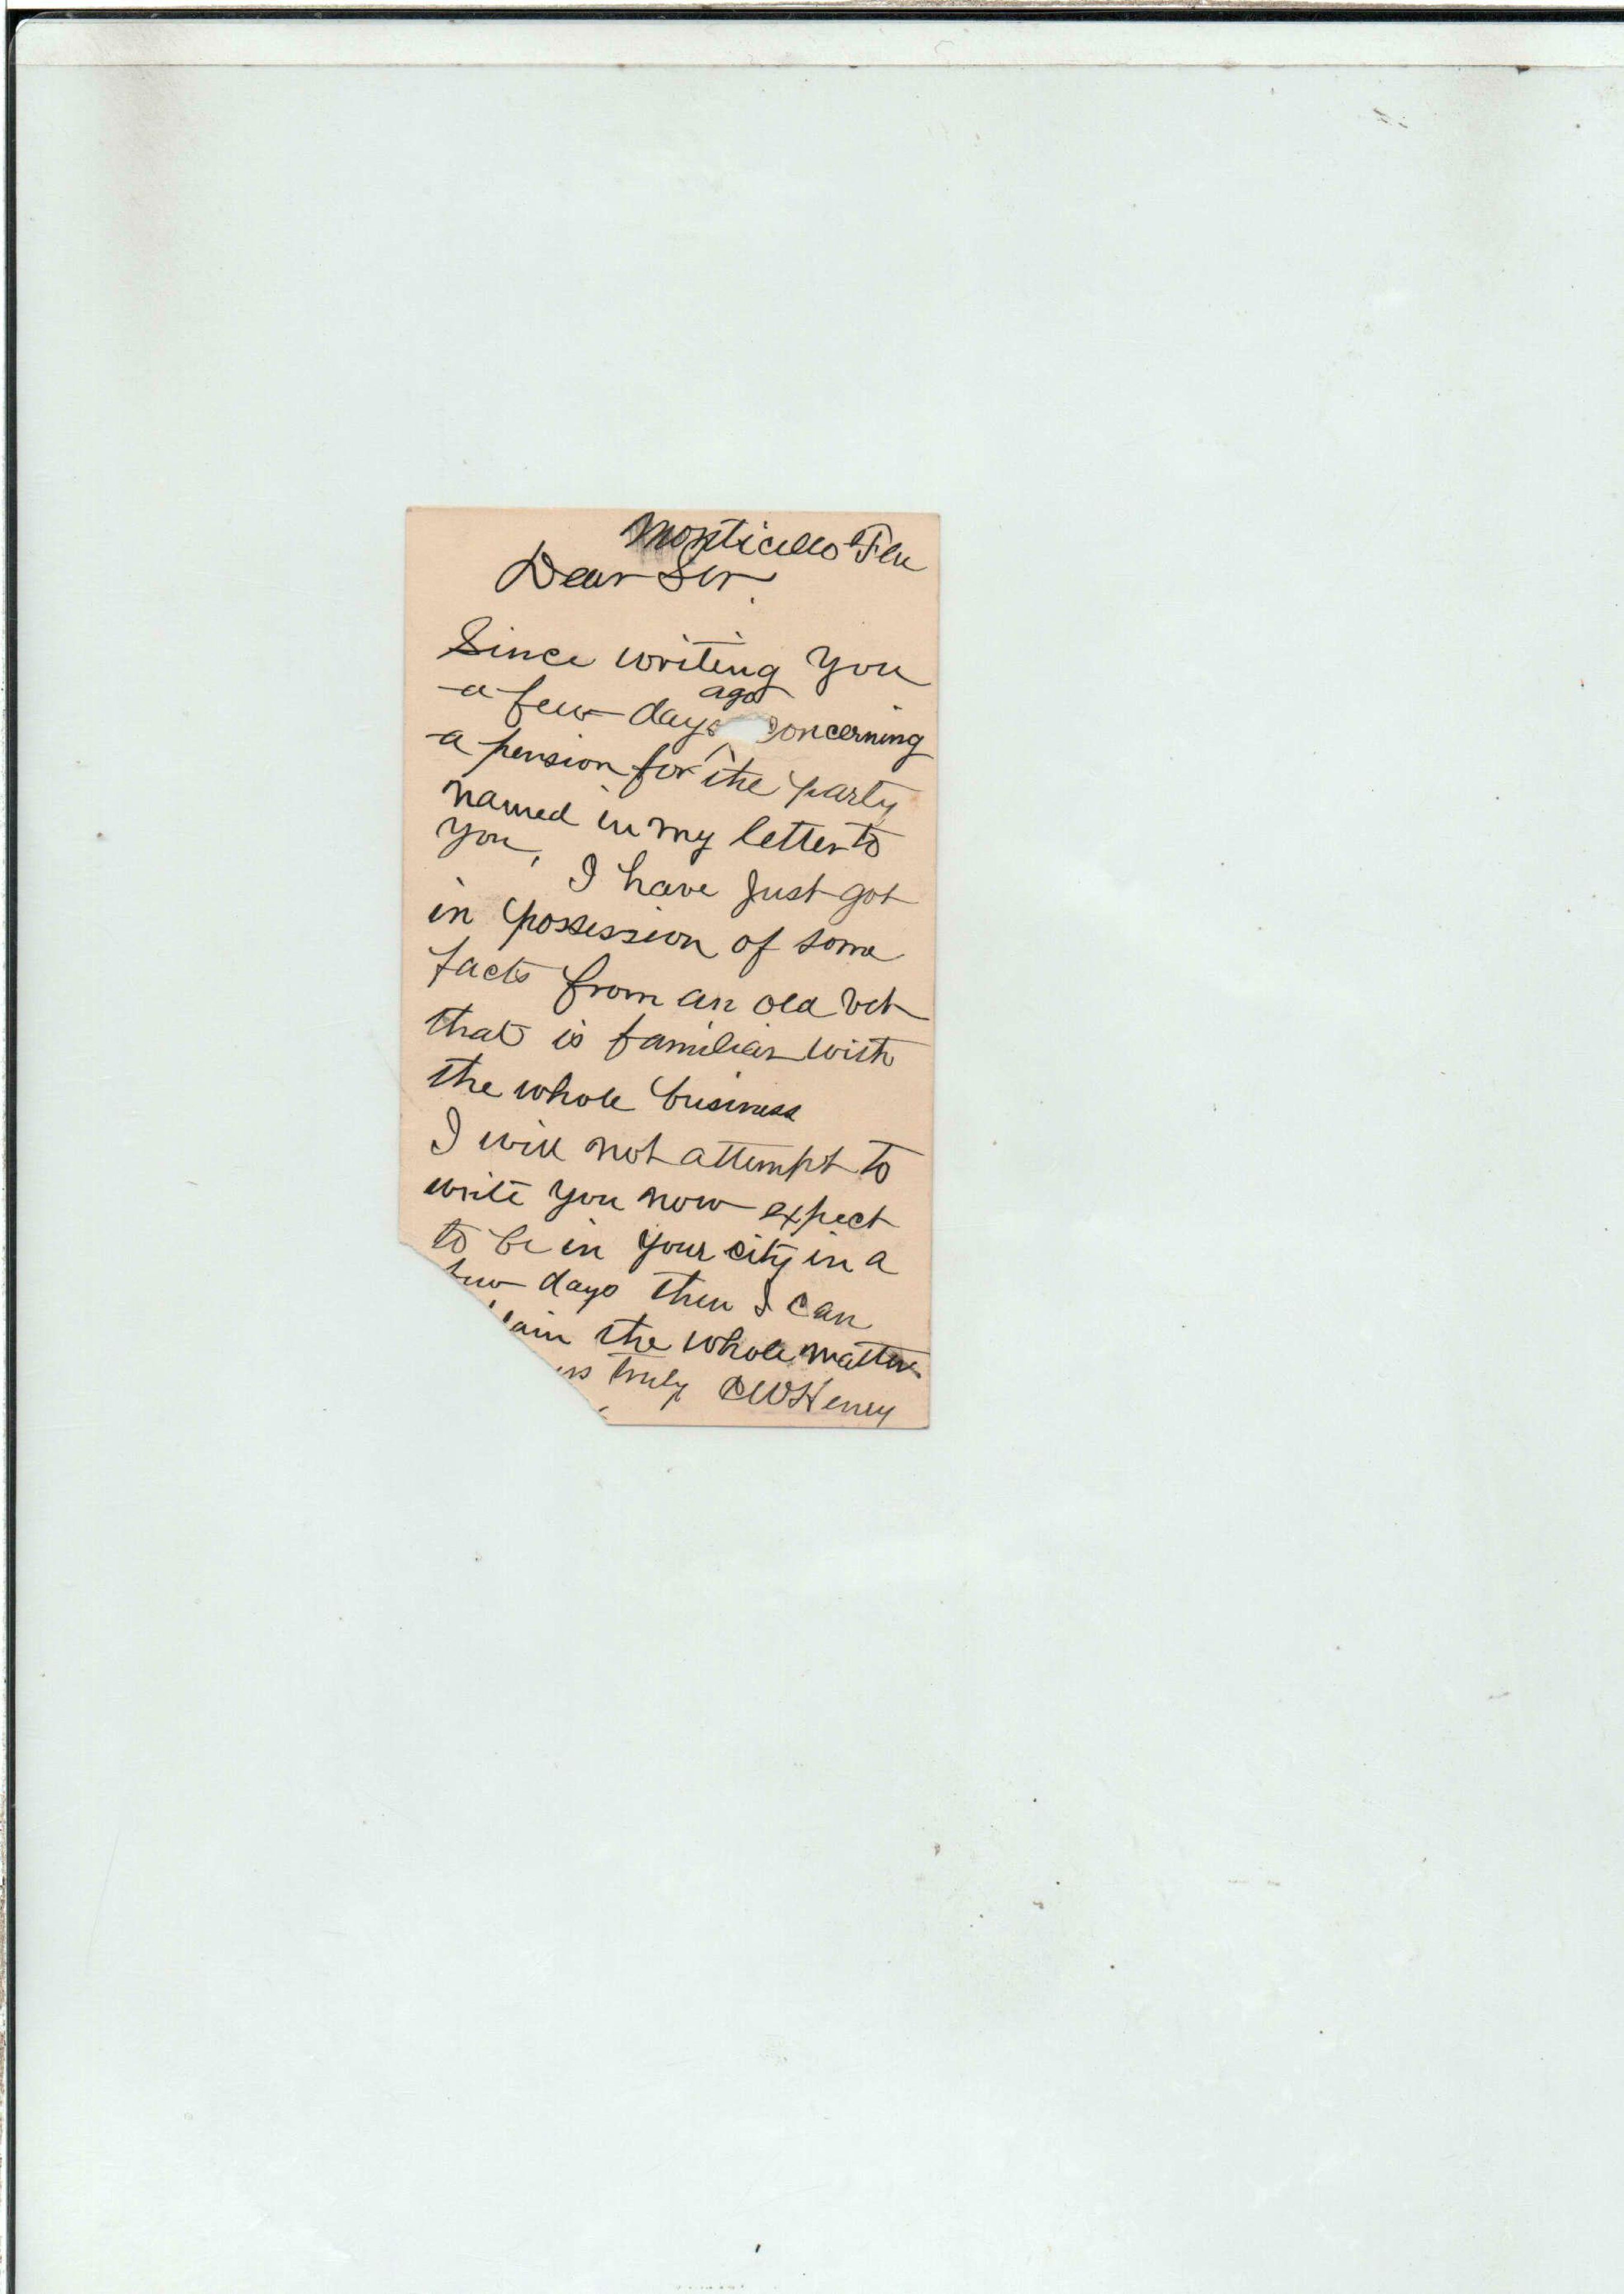 Monticello Fla
Dear Sir.
Since writing you
a few days ago concerning
a pension for the party
named in my letter to
you, I have Just got
in possession of some
facts from an old vet
that is familiar with
the whole business
I will not attempt to
write you now expect
to be in your city in a
few days then I can
lain the whole matter
rs truly CW Henry